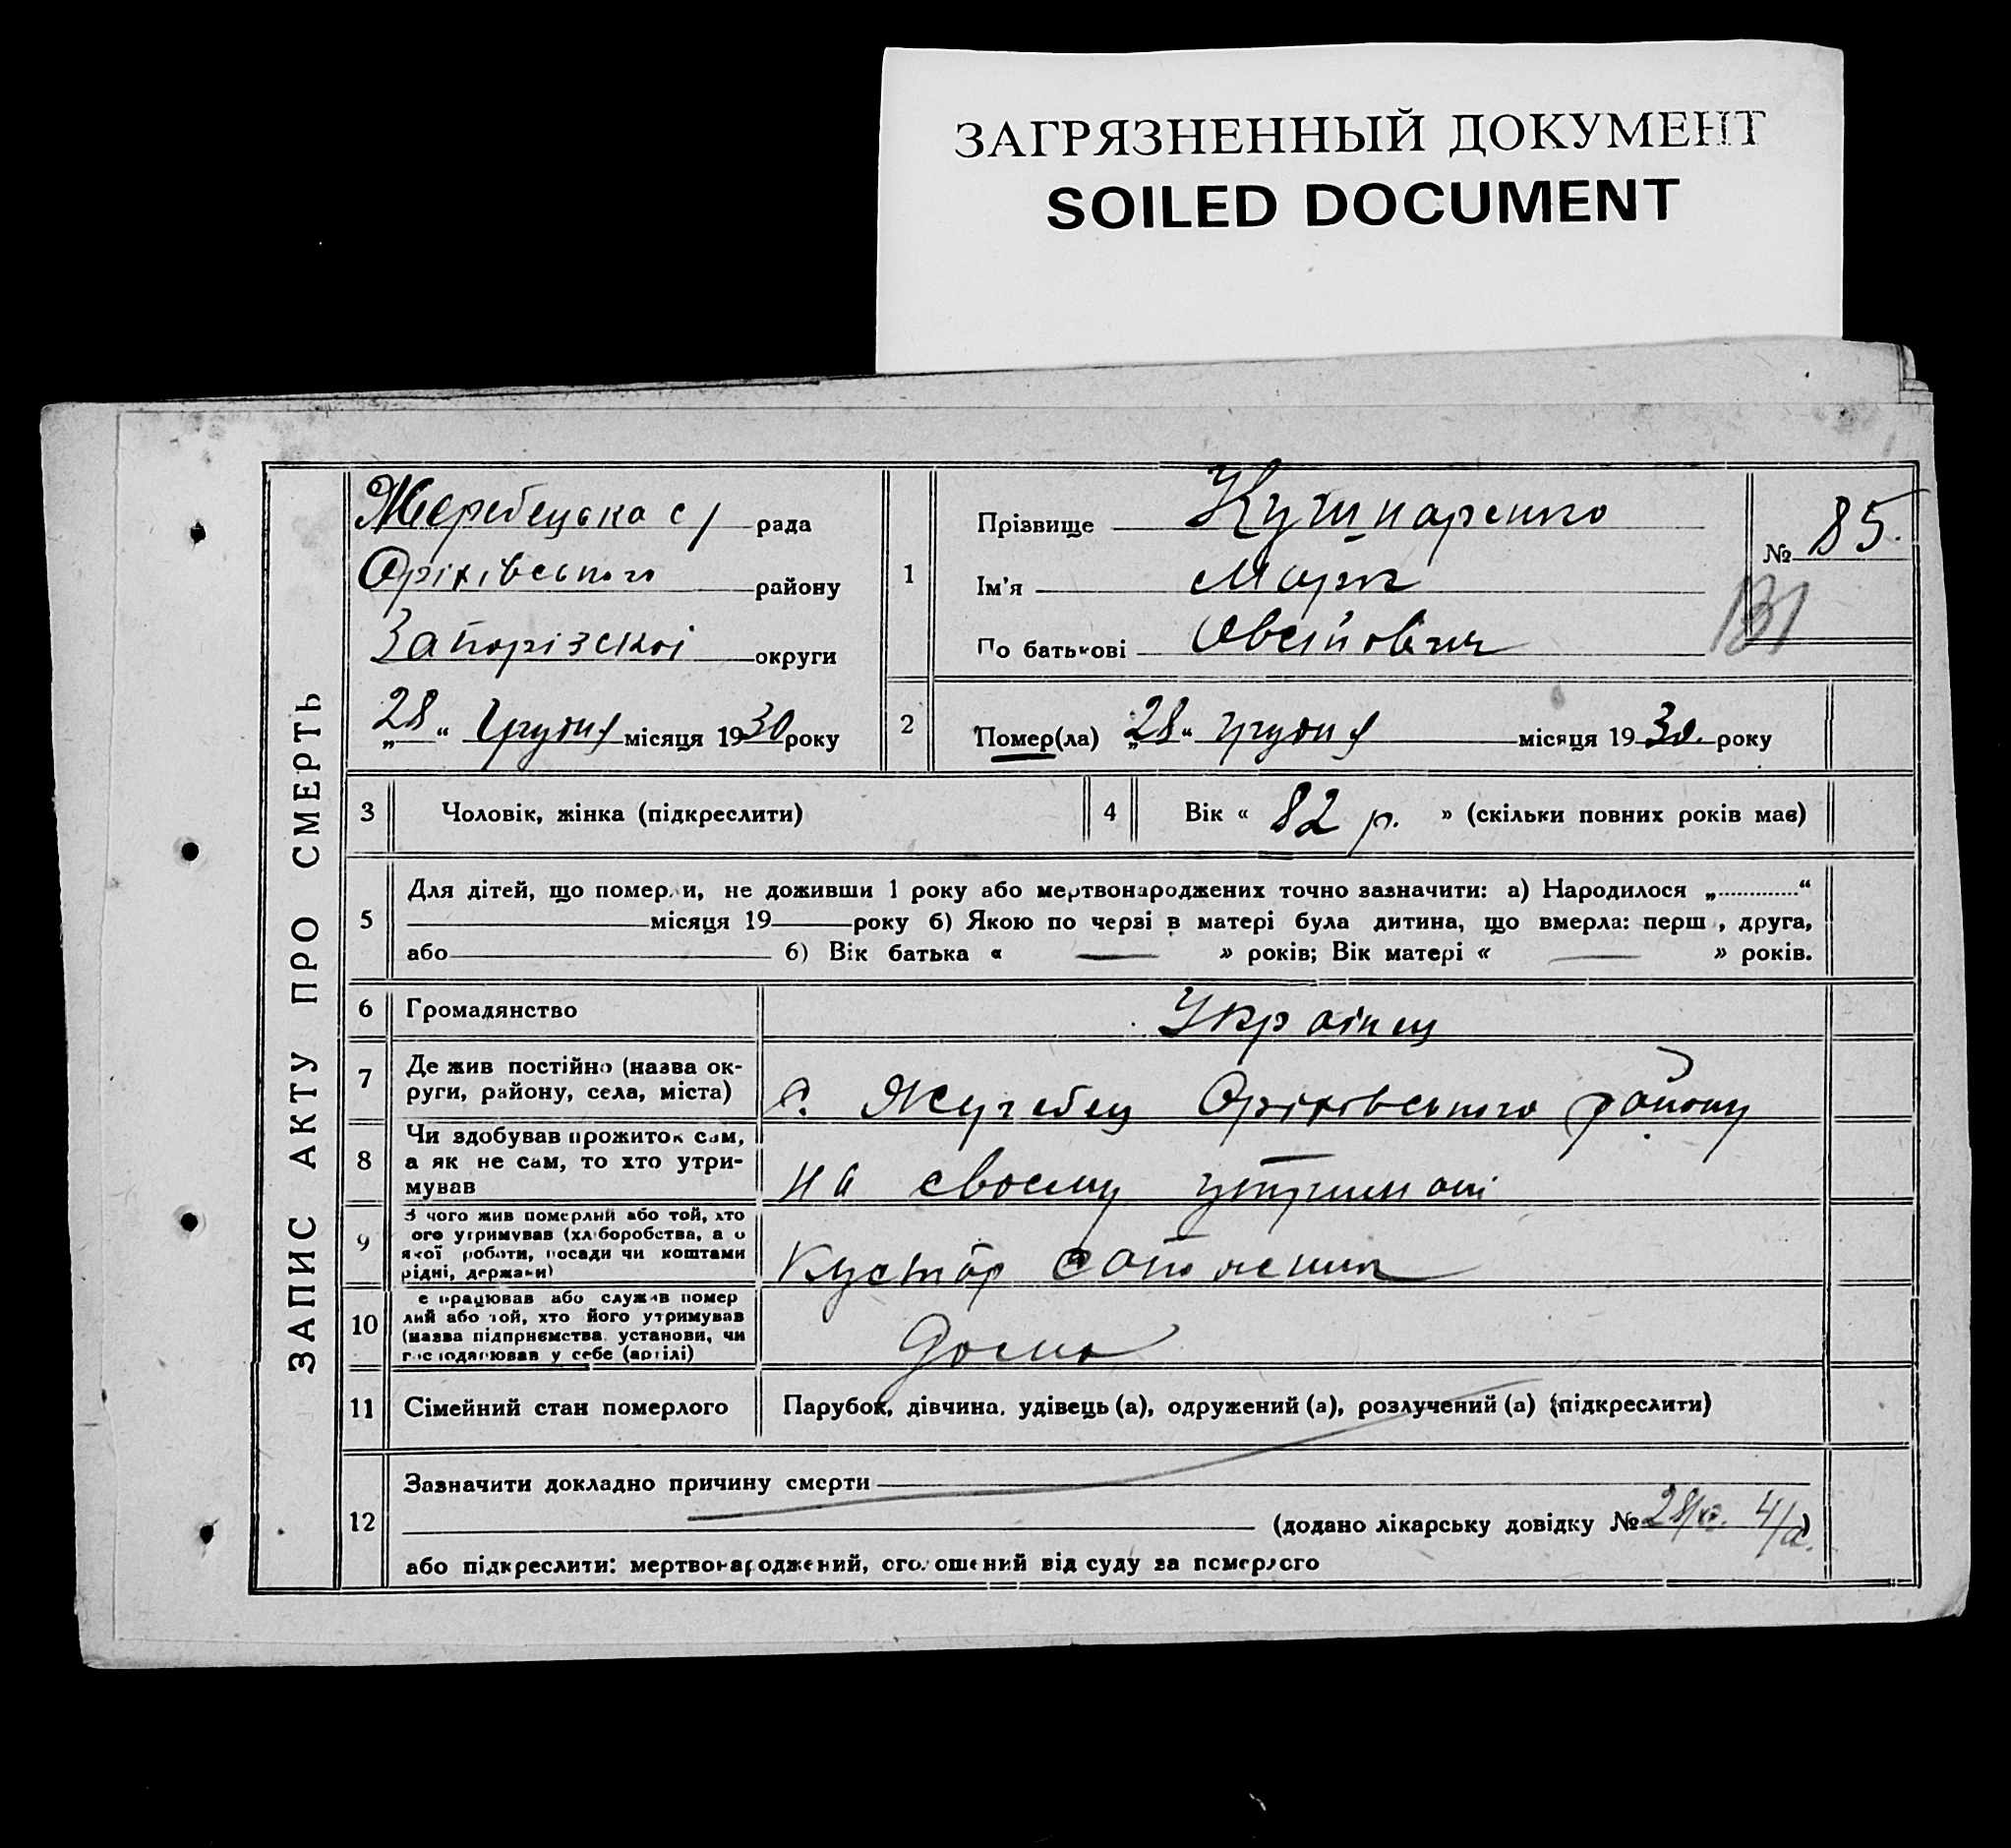 ЗАГРЯЗНЕННЫЙ ДОКУМЕНТ
SOILED DOCUMENT
ЗАПИС АКТУ ПРО СМЕРТЬ
Жеребецька с/ рада
Оріхівського району
Запорізскоі округи
„28“ Грудня місяця 1930 року
1
Прізвище Кушнаренко
Ім'я Марк
По батькові
№ 85.
131
2
Помер(ла) „28“ грудня місяця 1930. року
3 Чоловік, жінка (підкреслити)
4 Вік « 82 р. » (скільки повних років має)
5
Для дітей, що померли, не доживши 1 року або мертвонароджених точно зазначити: а) Народилося „ “
місяця 19 року б) Якою по черзі в матері була дитина, що вмерла: перш , друга,
або б) Вік батька « — » років; Вік матері « — » років.
6 Громадянство Украінец
7 Де жив постійно (назва ок-
руги, району, села, міста)
с. Жеребец Оріхівського району
8 Чи здобував прожиток сам,
а як не сам, то хто утри-
мував
на своему утриман
9 З чого жив померлий або той, хто
ого утримував (хліборобства, а о
якої роботи, посади чи коштами
рідні, держави)
Кустар
10 е працював або служив помер
лий або той, хто його утримував
(назва підприємства, установи, чи
господарював у себе (артілі)
Дома
11 Сімейний стан померлого Парубок, дівчина, удівець (а), одружений (а), розлучений (а) (підкреслити)
12 Зазначити докладно причину смерти
(додано лікарську довідку №
або підкреслити: мертвонароджений, оголошений від суду за померлого